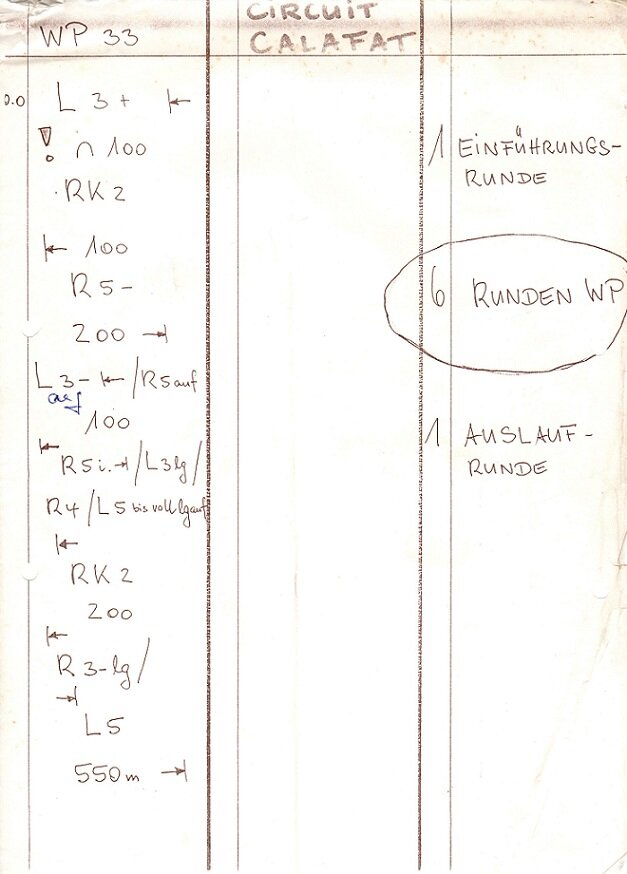 CIRCUIT
CALAFAT
WP 33
0.0 L 3 + |←
! ∩ 100
RK 2
|← 100
R 5 -
200 →|
L 3 - |← / R5 auf
auf
100
|←
R5 i. →| / L3lg /
R4 / L5 bis voll lg auf
|←
RK 2
200
|←
R 3 - lg /
→|
L 5
550m →|
1 EINFÜHRUNGS-
RUNDE
6 RUNDEN WP
1 AUSLAUF-
RUNDE